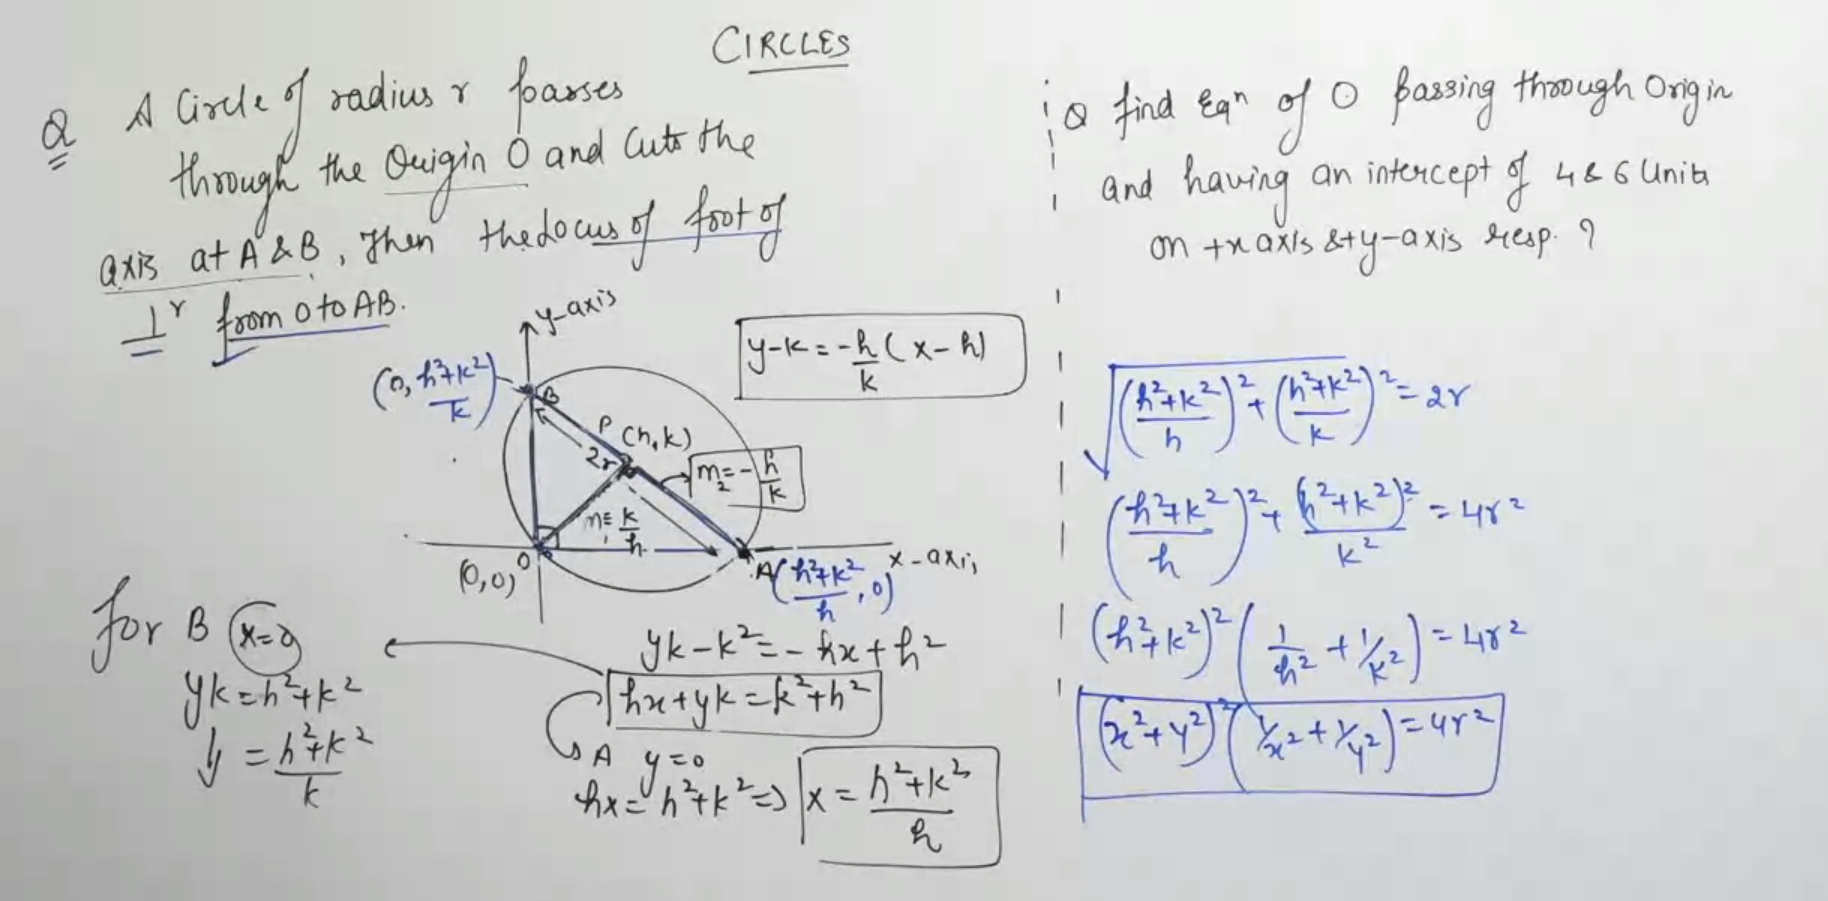 CIRCLES
Q A Circle of radius r passes
through the Origin O and Cuts the
axis at A & B, Then the Locus of foot of
⊥r from O to AB.
y-axis
(0, (h²+k²)/k)
B
P (h,k)
2r
m₂ = -h/k
m₁ = k/h
O
(0,0)
A((h²+k²)/h, 0)
x-axis
y-k = -h/k (x-h)
yk-k² = -hx+h²
hx+yk = k²+h²
A y=0
hx = h²+k² ⇒ x = (h²+k²)/h
for B x=0
yk = h²+k²
y = (h²+k²)/k
Q find Eqn of O passing through Origin
and having an intercept of 4 & 6 Units
on +x axis & +y-axis resp. ?
√(((h²+k²)/h)² + ((h²+k²)/k)²) = 2r
((h²+k²)/h)² + (h²+k²)²/k² = 4r²
(h²+k²)² (1/h² + 1/k²) = 4r²
(x²+y²)² (1/x² + 1/y²) = 4r²